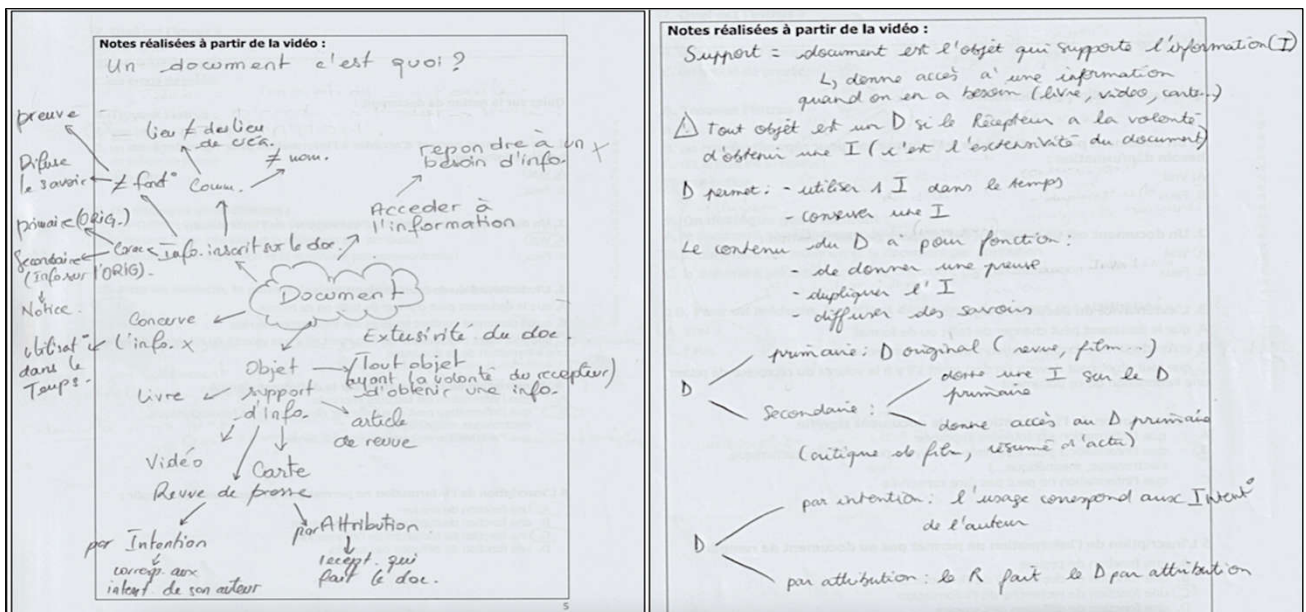 Notes réalisées à partir de la vidéo :
Un document c'est quoi ?
preuve
lieu ≠ du lieu
de créa.
≠ mom.
repondre à un
besoin d'info. x
Difuse
le savoir
≠ font°
Comm.
Acceder à
l'information
primaire (ORIG.)
Secondaire
(Info sur l'ORIG).
Notice.
Info. inscrit sur le doc.
Document
Concerve
l'info. x
utilisat°
dans le
Temps.
Extusirité du doc.
Objet
support
d'Info.
Tout objet
ayant la volonté du recepteur)
d'obtenir une info.
Livre
article
de revue
Vidéo
Carte
Revue de presse
par Intention
corresp. aux
intent° de son auteur
par Attribution.
recept. qui
fait le doc.
5
Notes réalisées à partir de la vidéo :
Support = document est l'objet qui supporte l'information (I)
↳ donne accès à une information
quand on en a besoin (livre, vidéo, carte..)
⚠ Tout objet est un D si le Récepteur a la volonté
d'obtenir une I (c'est l'extensivité du document)
D permet : - utiliser 1 I dans le temps
- conserver une I
Le contenu du D a pour fonction :
- de donner une preuve
- dupliquer l'I
- diffuser des savoirs
D
primaire : D original (revue, film..)
Secondaire :
donne une I sur le D
primaire
donne accès au D primaire
(critique de film, résumé d'actes)
D
par intention : l'usage correspond aux Intent°
de l'auteur
par attribution : le R fait le D par attribution